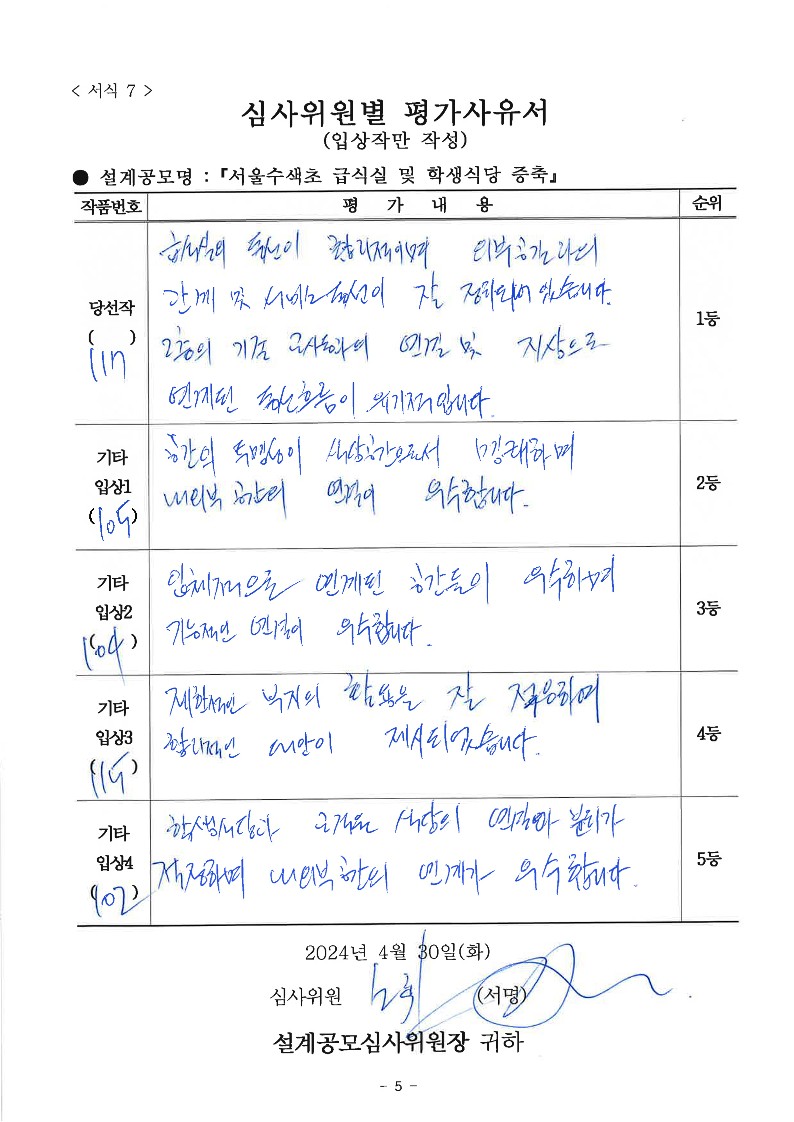 < 서식 7 >
심사위원별 평가사유서
(입상작만 작성)
● 설계공모명 : 『서울수색초 급식실 및 학생식당 증축』
작품번호 평 가 내 용 순위
당선작
( )
117
급식실의 동선이 합리적이며 외부공간과의
관계 및 서비스동선이 잘 정리되어 있습니다.
2층의 기존 교사동과의 연결 및 지상으로
연계된 동선흐름이 유기적입니다.
1등
기타
입상1
(105)
공간의 투명성이 식당공간으로서 명쾌하며
내외부 공간의 연결이 우수합니다.
2등
기타
입상2
(104)
입체적으로 연계된 공간들이 우수하며
기능적인 연결이 우수합니다.
3등
기타
입상3
(115)
제한적인 부지의 활용을 잘 적용하며
합리적인 대안이 제시되었습니다.
4등
기타
입상4
(102)
학생식당과 교직원 식당의 연결과 분리가
적정하며 내외부공간의 연계가 우수합니다.
5등
2024년 4월 30일(화)
심사위원 (서명)
설계공모심사위원장 귀하
- 5 -